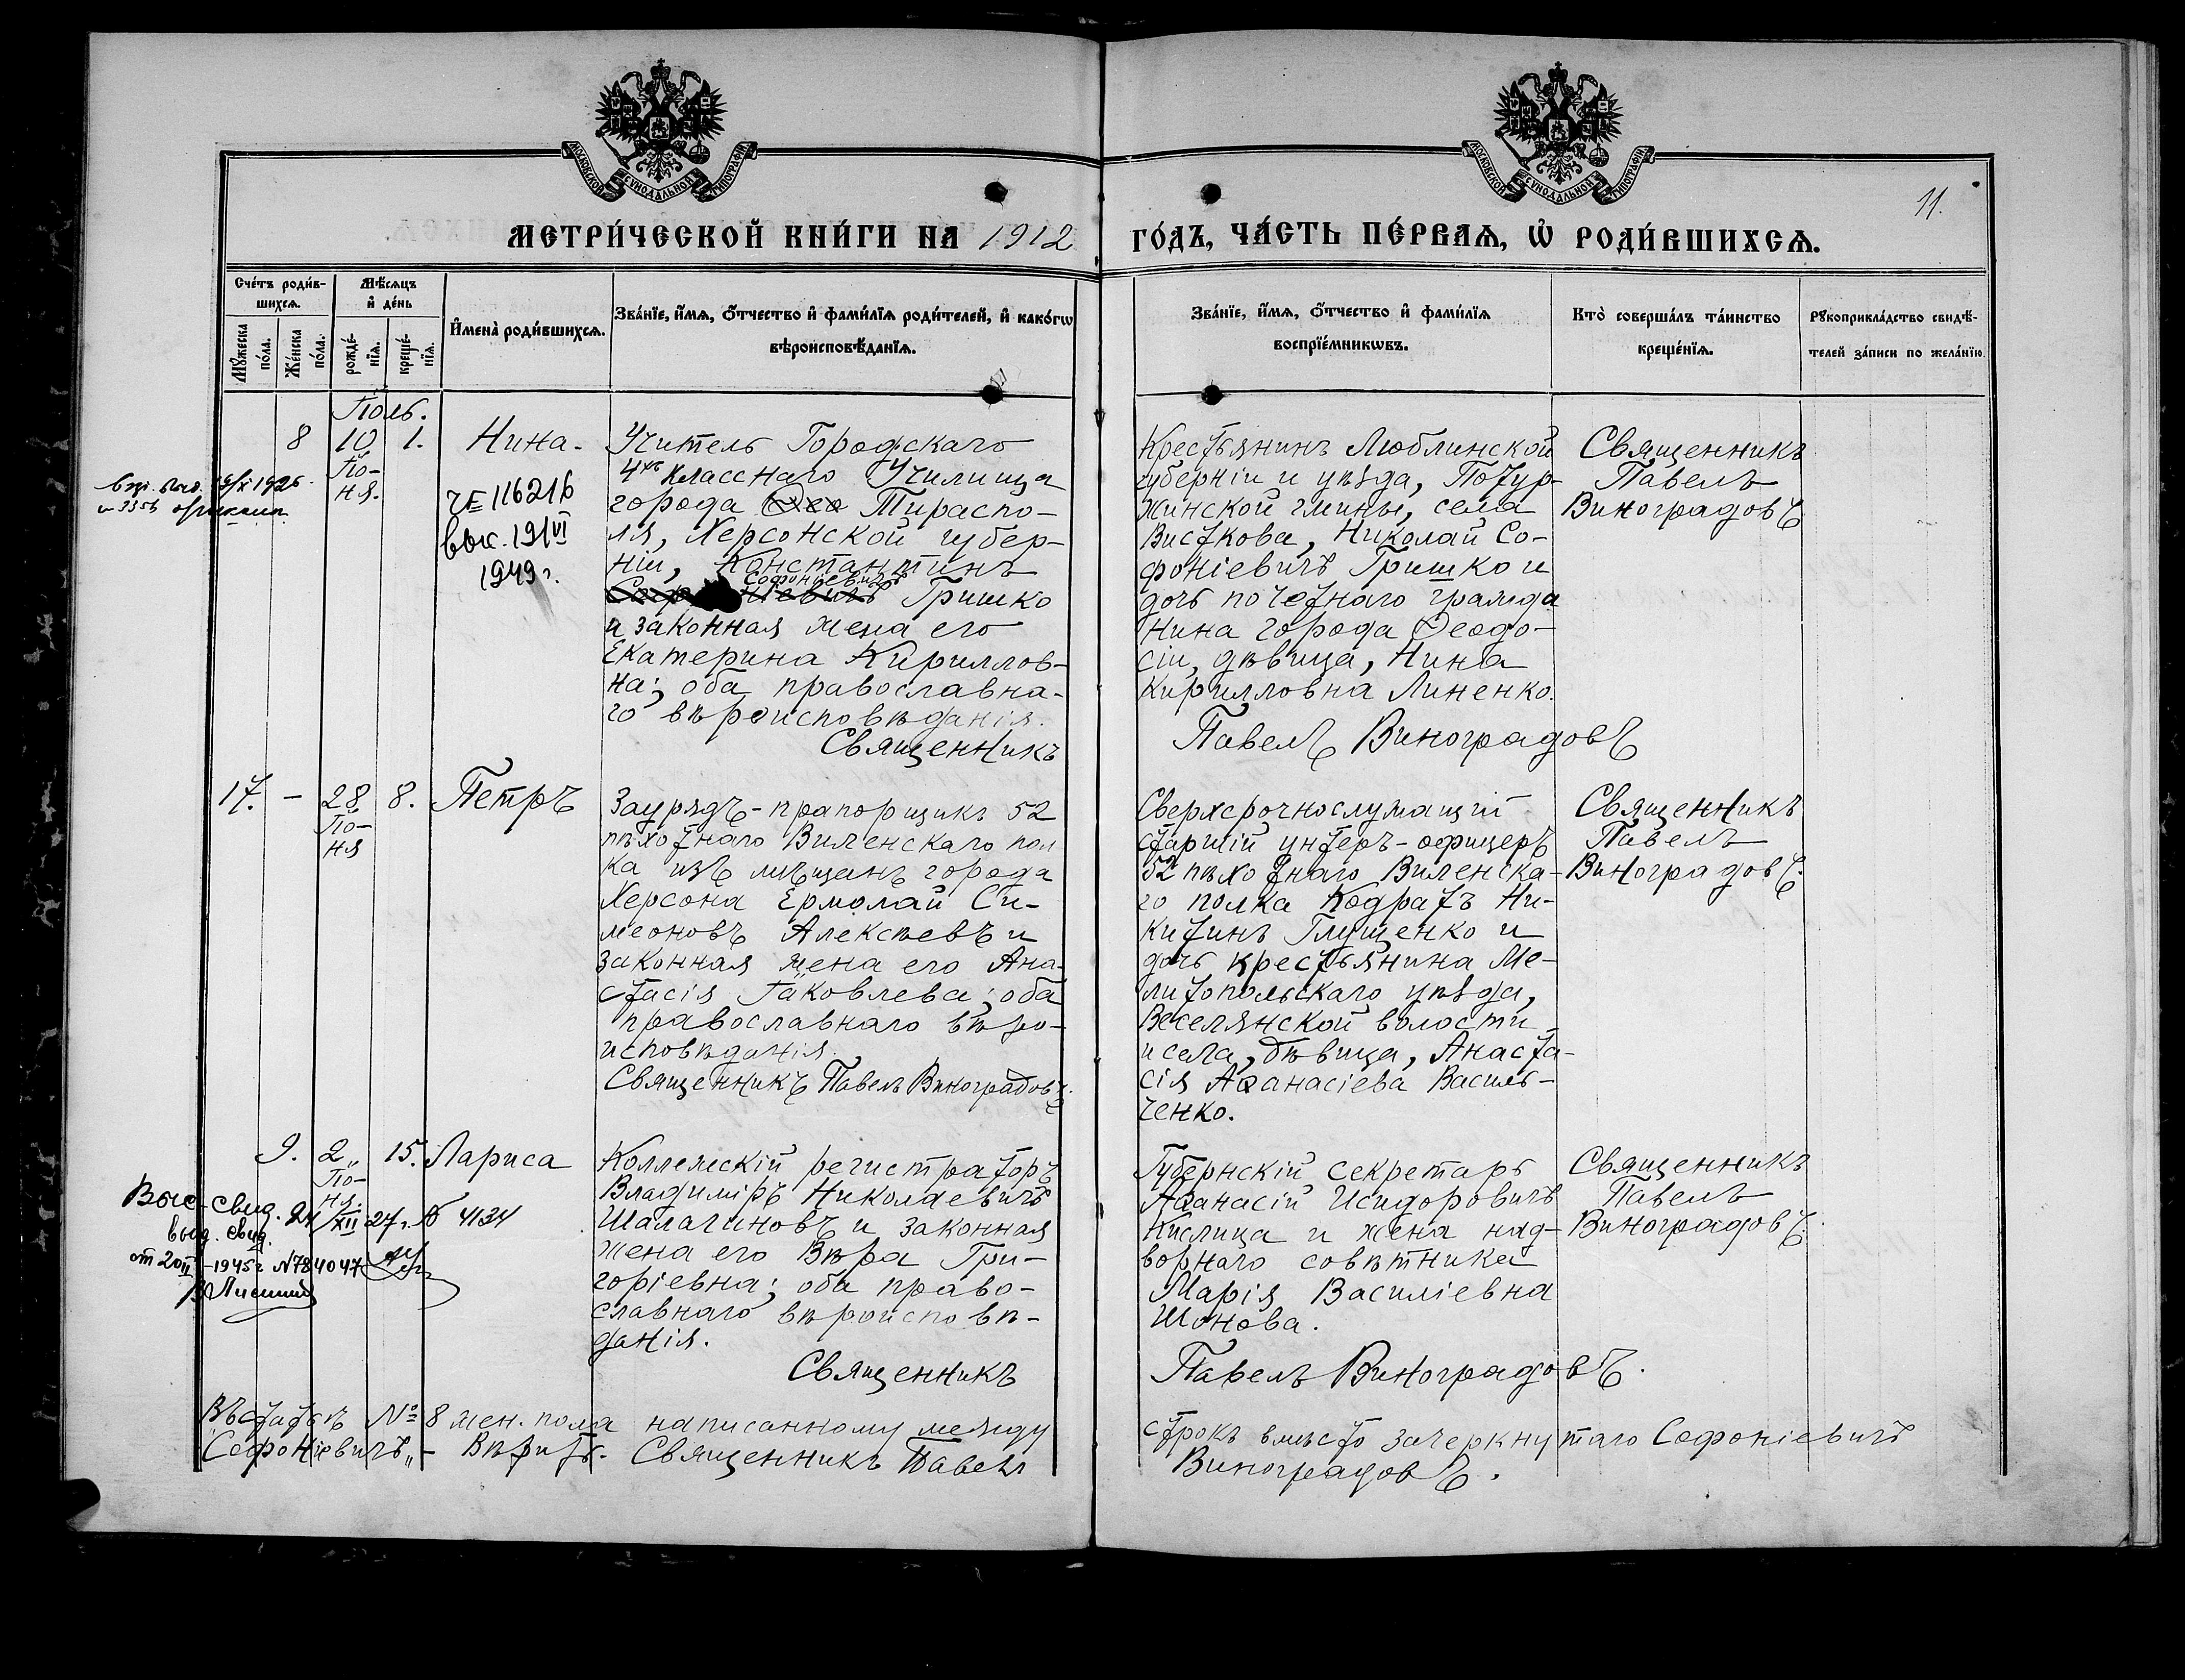 МОСКОВСКОЙ СѴНОДАЛЬНОЙ ТИПОГРАФІИ
МОСКОВСКОЙ СѴНОДАЛЬНОЙ ТИПОГРАФІИ
11.
МЕТРИ́ЧЕСКОЙ КНИ́ГИ НА 1912 ГО́ДЪ, ЧА́СТЬ ПЕ́РВАѦ, Ѡ҆ РОДИ́ВШИХСѦ.
Сче́тъ роди́в-
шихсѧ.
Мꙋжеска по́ла.
Же́нска по́ла.
Мѣ́сѧцъ
и҆ де́нь
рожде́-
нїѧ.
креще́-
нїѧ.
И҆мена̀ роди́вшихсѧ.
Зва́нїе, и҆́мѧ, ѻ҆́тчество и҆ фами́лїѧ роди́телей, и҆ како́гѡ
вѣроисповѣ́данїѧ.
Зва́нїе, и҆́мѧ, ѻ҆́тчество и҆ фами́лїѧ
воспрїе́мникѡвъ.
Кто̀ соверша́лъ та́инство
креще́нїѧ.
Рꙋкоприкла́дство свидѣ́-
телей за́писи по жела́нїю.
Іюль.
8 10 1. Нина.
Ію-
ня.
ЧЕ 116216
выс. 19/VI
1949 г.
Учитель Городскаго
4хъ класснаго Училища
города Ѳео Тираспо-
ля, Херсонской губер-
ніи, Константинъ
Софоніевичъ
Гришко
и законная жена его
Екатерина Кириллов-
на; оба православна-
го вѣроисповѣданія.
Священникъ
Крестьянинъ Люблинской
губерніи и уѣзда, Потур-
жинской гмины, села
Виткова, Николай Со-
фоніевичъ Гришко и
дочь почетнаго гражда
нина города Ѳеодо-
сіи, дѣвица, Нина
Кирилловна Линенко.
Павелъ Виноградовъ
Священникъ
Павелъ
Виноградовъ
17. – 28 8. Петръ
Ію-
ня
Заурядъ-прапорщикъ 52
пѣхотнаго Виленскаго пол
ка изъ мѣщанъ города
Херсона Ермолай Си-
меоновъ Алексѣевъ и
законная жена его Ана-
стасія Іаковлева; оба
православнаго вѣро-
исповѣданія.
Священникъ Павелъ Виноградовъ.
Сверхсрочнослужащій
старшій унтеръ-офицеръ
52 пѣхотнаго Виленска-
го полка Кодратъ Ни-
китинъ Глущенко и
дочь крестьянина Ме-
литопольскаго уѣзда,
Веселянской волости
и села, дѣвица, Анаста-
сія Аѳанасіева Василь-
ченко.
Священникъ
Павелъ
Виноградовъ.
9. 2„ 15. Лариса
Ію-
ня.
Выс. свид. 24/XII 27 г. № 4134
выд. свид.
от 20 II-1945 г N784047
Коллежскій регистраторъ
Владиміръ Николаевичъ
Шалагиновъ и законная
жена его Вѣра Гри-
горіевна; оба право-
славнаго вѣроисповѣ-
данія.
Священникъ
Губернскій секретарь
Аѳанасій Исидоровичъ
Кислица и жена над-
ворнаго совѣтника
Марія Василіевна
Шонова.
Павелъ Виноградовъ.
Священникъ
Павелъ
Виноградовъ.
Въ статьѣ № 8 жен. пола написанному между строкъ вмѣсто зачеркнутаго Софоніевичъ
„Софоніевичъ„ – Вѣрить. Священникъ Павелъ Виноградовъ.